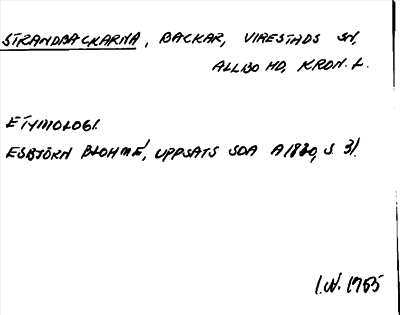 STRANDBACKARNA, BACKAR, VIRESTADS SN,
ALLBO HD, KRON. L.
ETYMOLOGI.
ESBJÖRN BLOHMÉ, UPPSATS SOA A1820, S. 31.
1955